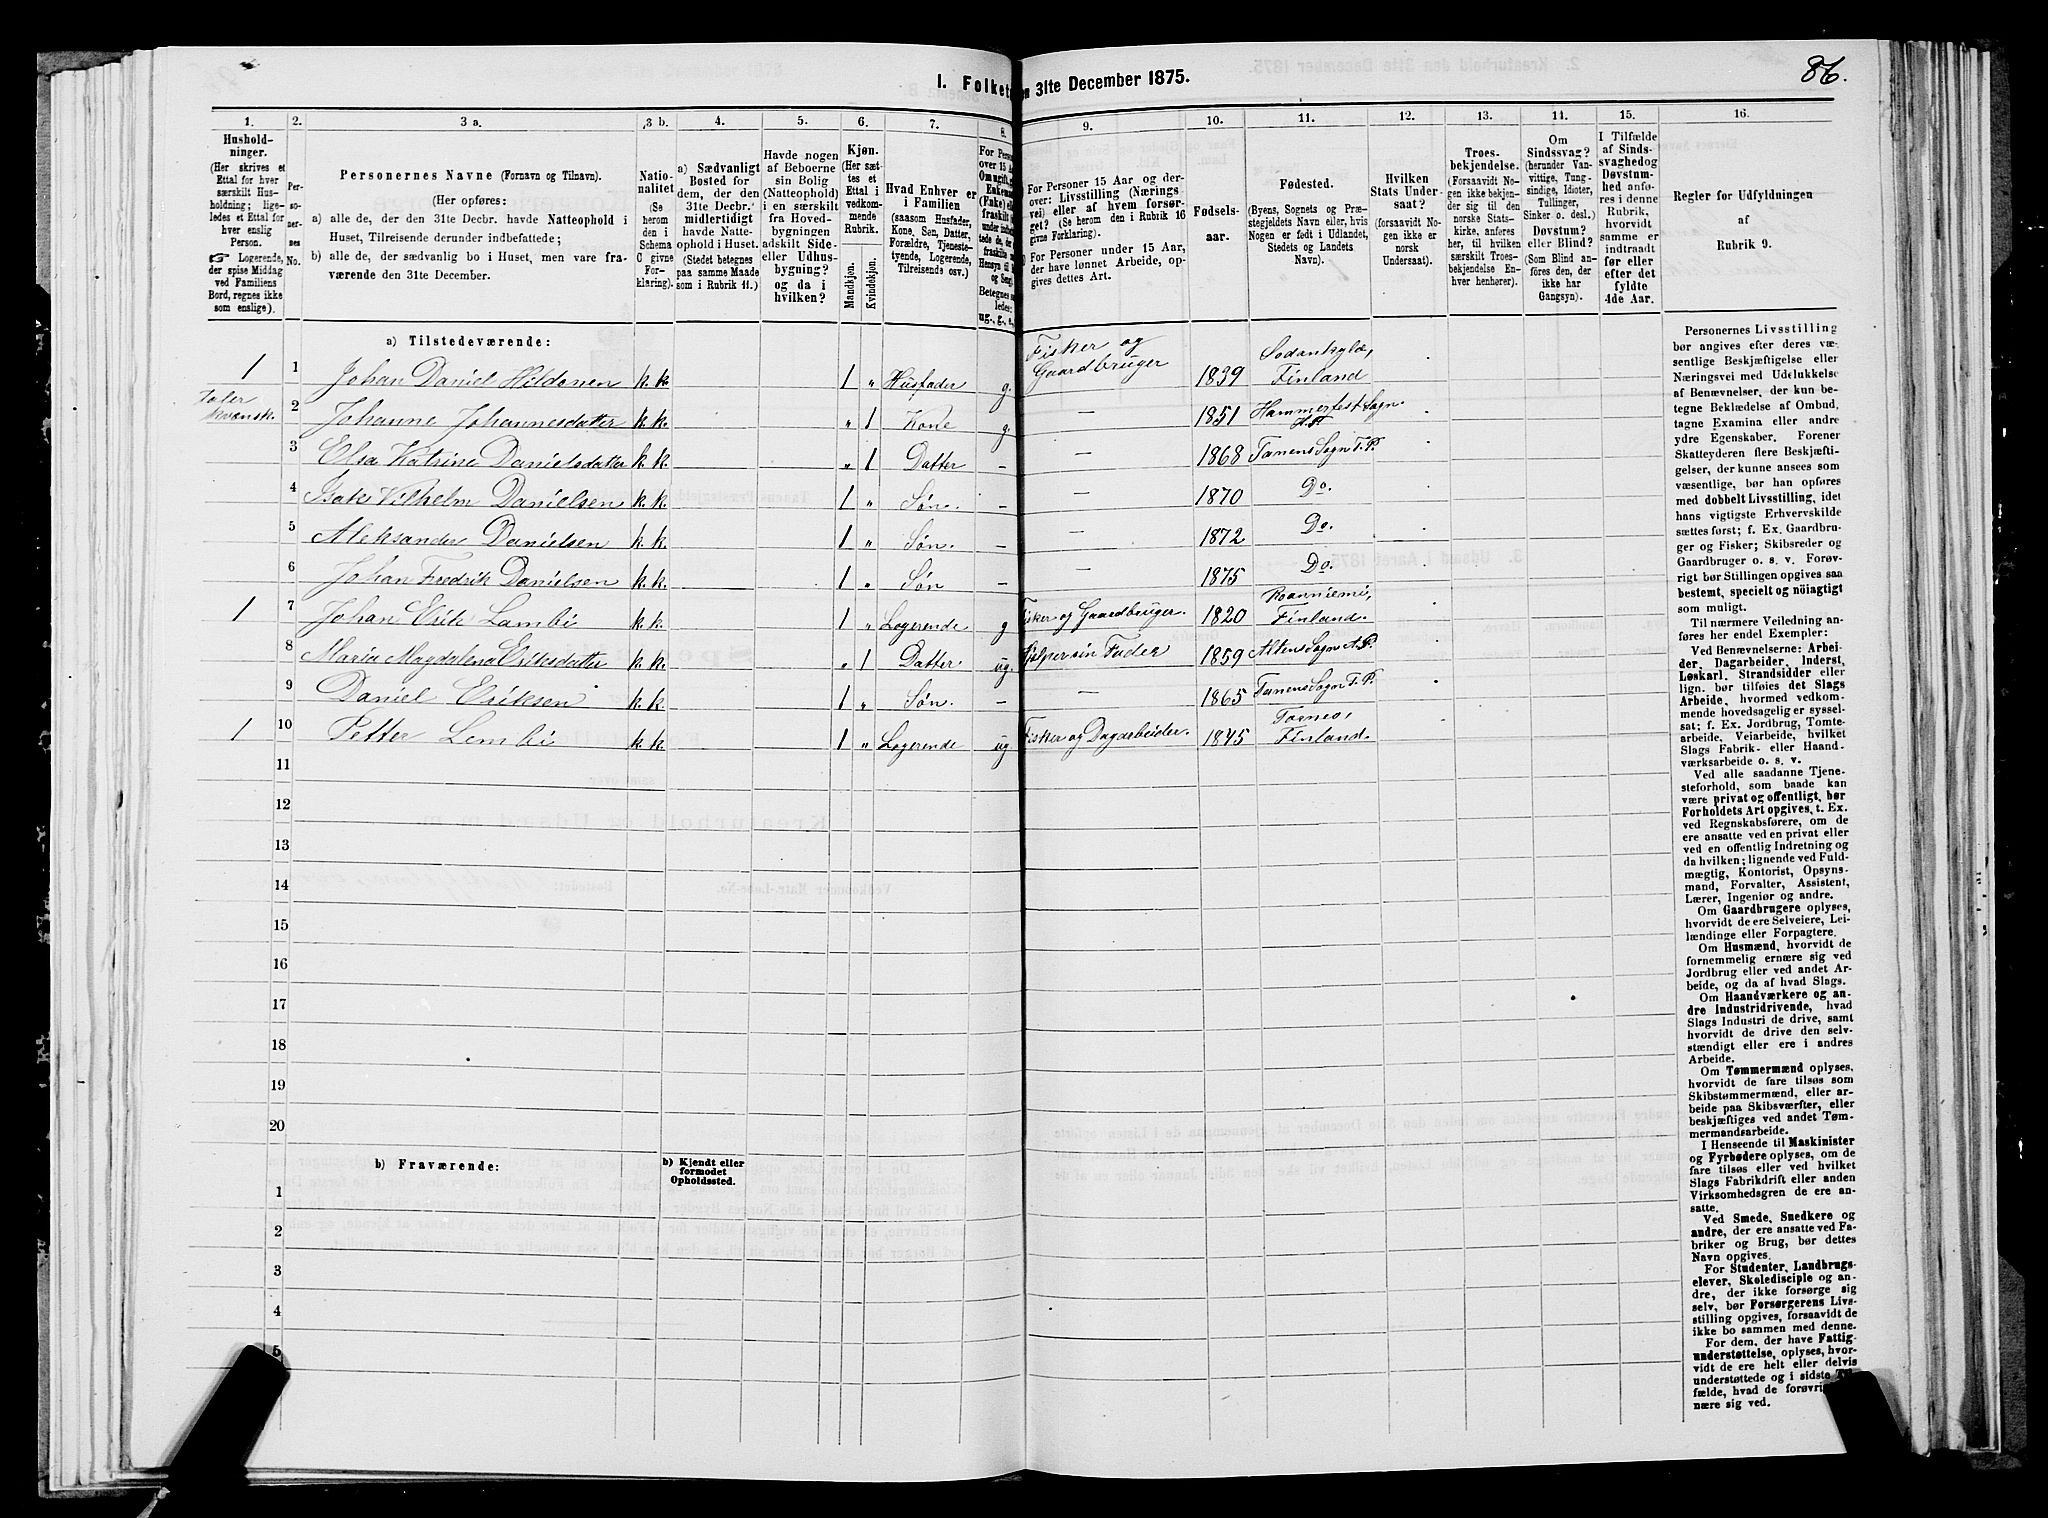 86.
I. Folket
n 31te December 1875.
1.
2.
3 a.
3 b.
4.
5.
6.
7.
8.
9.
10.
11.
12.
13.
14.
15.
16.
Husholdninger.
(Her skrives et
Ettal for hver
særskilt Husholdning; ligeledes et Ettal for
hver enslig
Person.
☞ Logerende,
der spise Middag
ved Familiens
Bord, regnes ikke
som enslige).
Personernes No.
Personernes Navne (Fornavn og Tilnavn).
(Her opføres:
a) alle de, der den 31te Decbr. havde Natteophold i
Huset, Tilreisende derunder indbefattede;
b) alle de, der sædvanlig bo i Huset, men vare fraværende den 31te December.
Nationalitet
(Se
herom
den i
Schema
C givne
Forklaring).
a) Sædvanligt
Bosted for
dem, der den
31te Decbr.
midlertidigt
havde Natteophold i Huset.
(Stedet betegnes
paa samme Maade
som i Rubrik 11.)
Havde nogen
af Beboerne
sin Bolig
(Natteophold)
i en særskilt
fra Hovedbygningen
adskilt Side-
eller Udhusbygning?
og da i
hvilken?
Kjøn.
(Her sættes et
Ettal i
vedkommende
Rubrik.
Mandkjøn.
Kvindekjøn.
Hvad Enhver er
i Familien
(saasom Husfader,
Kone, Søn, Datter,
Forældre, Tjenestetyende, Logerende,
Tilreisende osv.)
For Personer 15 Aar og derover: Livsstilling (Næringsvei) eller af hvem forsørget? (Se herom den i Rubrik 16
givne Forklaring).
For Personer under 15 Aar,
der have lønnet Arbeide, opgives dettes Art.
Fødselsaar.
Fødested.
(Byens, Sognets og Præstegjeldets Navn eller, hvis
Nogen er født i Udlandet,
Stedets og Landets
Navn).
Hvilken
Stats Undersaat?
(forsaavidt Nogen ikke er
norsk
Undersaat).
Troesbekjendelse.
(Forsaavidt Nogen ikke bekjender sig til den
norske Statskirke, anføres
her, til hvilken
særskilt Troesbekjendelse Enhver henhører).
Om
Sindssvag?
(herunder Vanvittige, Tungsindige, Idioter,
Tullinger,
Sinker o. desl.)
Døvstum?
eller Blind?
(Som Blind anføres den, der
ikke har
Gangsyn).
I Tilfælde
af Sindssvaghed og
Døvstumhed anføres i denne
Rubrik,
hvorvidt
samme er
indtraadt
før eller
efter det
fyldte
4de Aar.
Regler for Udfyldningen
af
Rubrik 9.
a) Tilstedeværende:
1 1 Johan Daniel Hildonen k. k. 1 „ Husfader g. Fisker og Gaardbruger 1839 Sodankyla, Finland
Taler kvænsk. 2 Johanne Johannesdatter k. k. „ 1 Kone g. — 1851 Hammerfest Sogn H.P.
3 Elsa Katrine Danielsdatter k. k. „ 1 Datter — — 1868 Tanens Sogn T. P.
4 Isak Vilhelm Danielsen k. k. 1 „ Søn. — — 1870 Do.
5 Aleksander Danielsen k. k. 1 „ Søn. — — 1872 Do.
6 Johan Fredrik Danielsen k. k. 1 „ Søn — — 1875 Do.
1 7 Johan Erik Lambi k. k. 1 „ Logerende g Fisker og Gaardbruger. 1820 Roanniemi, Finland.
8 Maria Magdalena Eriksdatter k. k. „ 1 Datter ug. Hjelper sin Fader 1859 Altens Sogn A.P.
9 Daniel Eriksen k. k. 1 „ Søn. — — 1865 Tanens Sogn T. P.
1 10 Petter Lembi k. k. 1 „ Logerende ug Fisker og Dagarbeider. 1845 Torneo, Finland.
11
12
13
14
15
16
17
18
19
20
b) Fraværende:
b) Kjendt eller
formodet
Opholdssted.
1
2
3
4
5
Personernes Livsstilling
bør angives efter deres væsentlige Beskjæftigelse eller
Næringsvei med Udelukkelse
af Benævnelser, der kun betegne Beklædelse af Ombud,
tagne Examina eller andre
ydre Egenskaber. Forener
Skatteyderen flere Beskjæftigelser, der kunne ansees som
væsentlige, bør han opføres
med dobbelt Livsstilling, idet
hans vigtigste Erhvervskilde
sættes først; f. Ex. Gaardbruger og Fisker; Skibsreder og
Gaardbruger o. s. v. Forøvrigt bør Stillingen opgives saa
bestemt, specielt og nöiagtigt
som muligt.
Til nærmere Veiledning anføres her endel Exempler:
Ved Benævnelserne: Arbeider, Dagarbeider, Inderst,
Løskarl, Strandsidder eller
lign. bør tilføies det Slags
Arbeide, hvormed vedkommende hovedsagelig er sysselsat; f. Ex. Jordbrug, Tomtearbeide, Veiarbeide, hvilket
Slags Fabrik- eller Haandværksarbeide o. s. v.
Ved alle saadanne Tjenesteforhold, som baade kan
være privat og offentligt, bør
Forholdets Art opgives, t. Ex.
ved Regnskabsførere, om de
ere ansatte ved en privat eller
ved en offentlig Indretning og
da hvilken; lignende ved Fuldmægtig, Kontorist, Opsynsmand, Forvalter, Assistent,
Lærer, Ingeniør og andre.
Om Gaardbrugere oplyses,
hvorvidt de ere Selveiere, Leilændinge eller Forpagtere.
Om Husmænd, hvorvidt de
fornemmelig ernære sig ved
Jordbrug eller ved andet Arbeide, og da af hvad Slags.
Om Haandværkere og andre Industridrivende, hvad
Slags Industri de drive, samt
hvorvidt de drive den selvstændigt eller ere i andres
Arbeide.
Om Tømmermænd oplyses,
hvorvidt de fare tilsøs som
Skibstømmermænd, eller arbeide paa Skibsværfter, eller
beskjæftiges ved andet Tømmermandsarbeide.
I Henseende til Maskinister
og Fyrbødere oplyses, om de
fare tilsøs eller ved hvilket
Slags Fabrikdrift eller anden
Virksomhedsgren de ere ansatte.
Ved Smede, Snedkere og
andre, der ere ansatte ved Fabriker og Brug, bør dettes
Navn opgives.
For Studenter, Landbrugselever, Skoledisciple og andre, der ikke forsørge sig
selv, bør Forsørgerens Livsstilling opgives, forsaavidt de
ikke bo sammen med denne.
For dem, der have Fattigunderstøttelse, oplyses, hvorvidt de ere helt eller delvis
understøttede og i sidste
fælde, hvad de
nære sig ved.